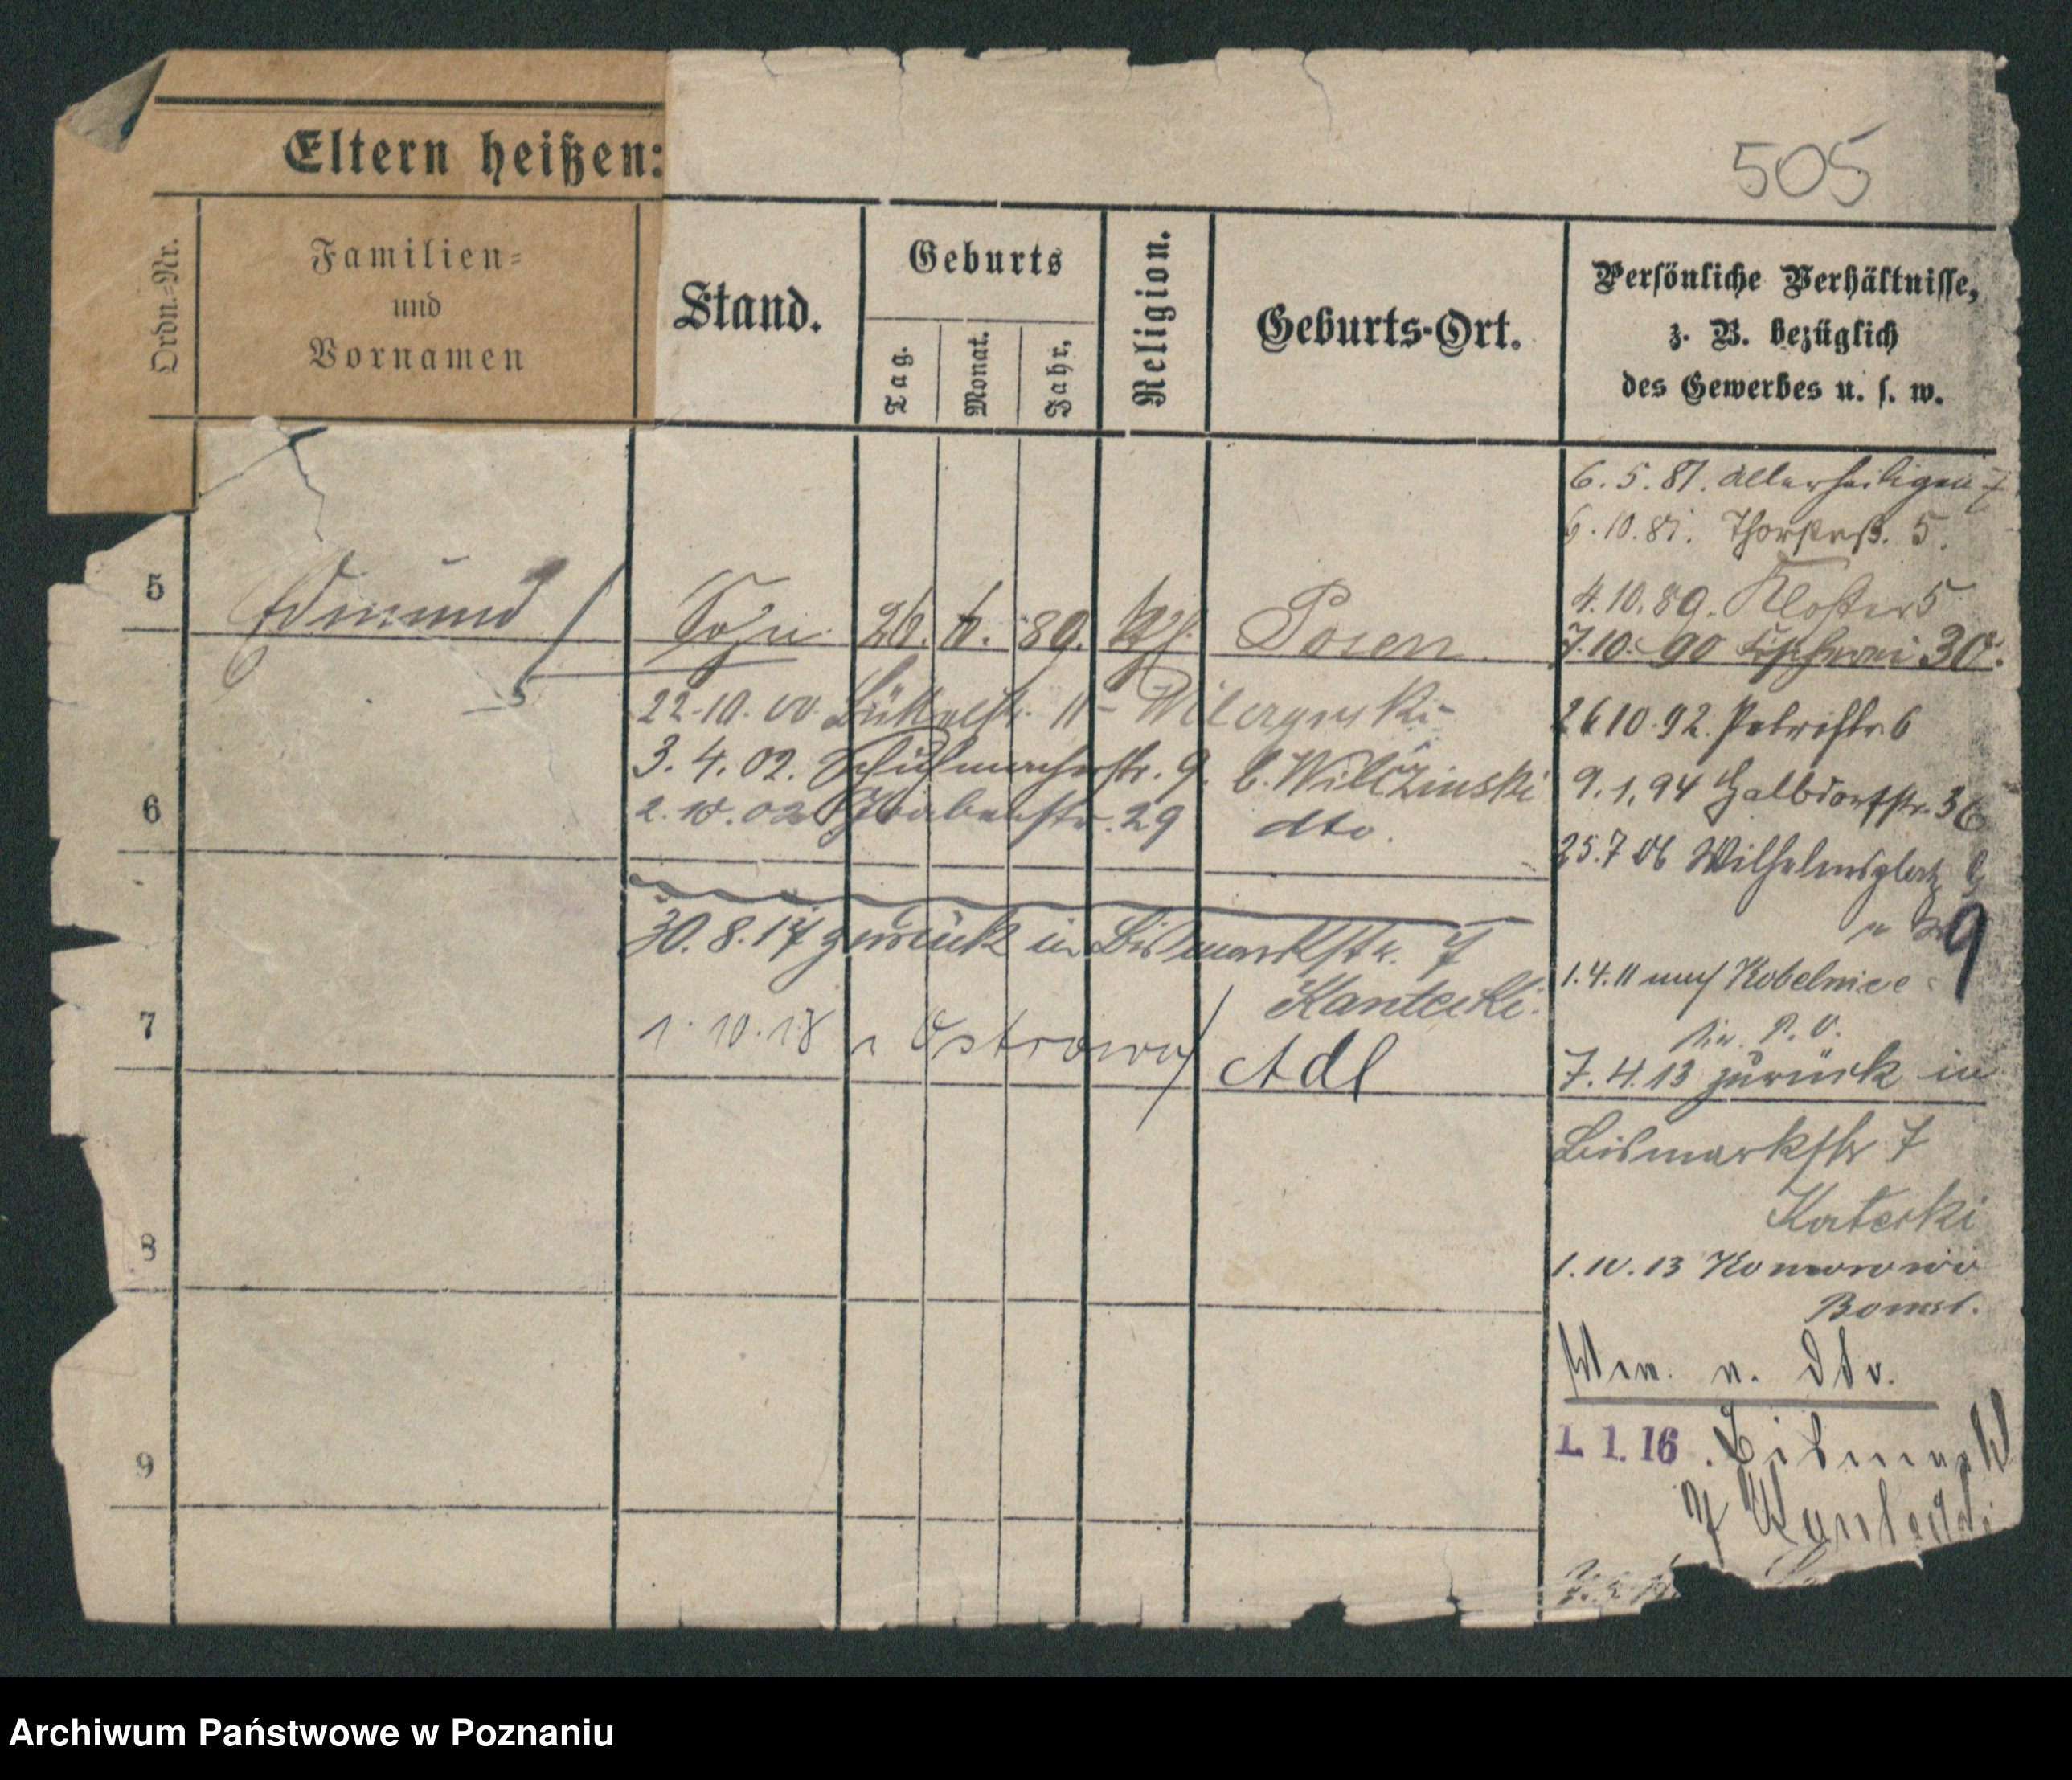 505
Eltern heißen:
Ordn.-Nr.
Familien-
und
Vornamen
Stand.
Geburts
Tag.
Monat.
Jahr.
Religion.
Geburts-Ort.
Persönliche Verhältnisse,
z. B. bezüglich
des Gewerbes u. s. w.
6. 5. 81. Allerheiligen 7
6. 10. 81. Thorstraß. 5.
4. 10. 89. Kloster 5
5 Edmund Sohn 26. 6. 89. Posen
7. 10. 90 30.
22. 10. 00. 11
26 10. 92. Petristr. 6
3. 4. 02. Schuhmacherstr. 9. b. Wilczinski
9. 1. 94 Halbdorfstr. 36
6 2. 10. 02 Grabenstr. 29 dto.
25. 7 06 Wilhelmsplatz
9
30. 8. 17 zurück in Bismarkstr. 7
Kantecki.
1. 4. 11 nach Kobelnice
7 1. 10. 18 n Ostrowo Adl
7. 4. 13 zurück in
Bismarkstr 7
Katecki
8
1. 10. 13 Komorowo
Bomst.
n. dto.
9
1. 1. 16. Bismark
7 Kantecki
Archiwum Państwowe w Poznaniu